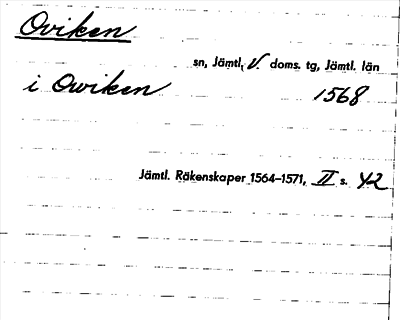 Oviken
sn, Jämtl. V. doms. tg, Jämtl. län
i Owiken 1568
Jämtl. Räkenskaper 1564–1571, II s. 42